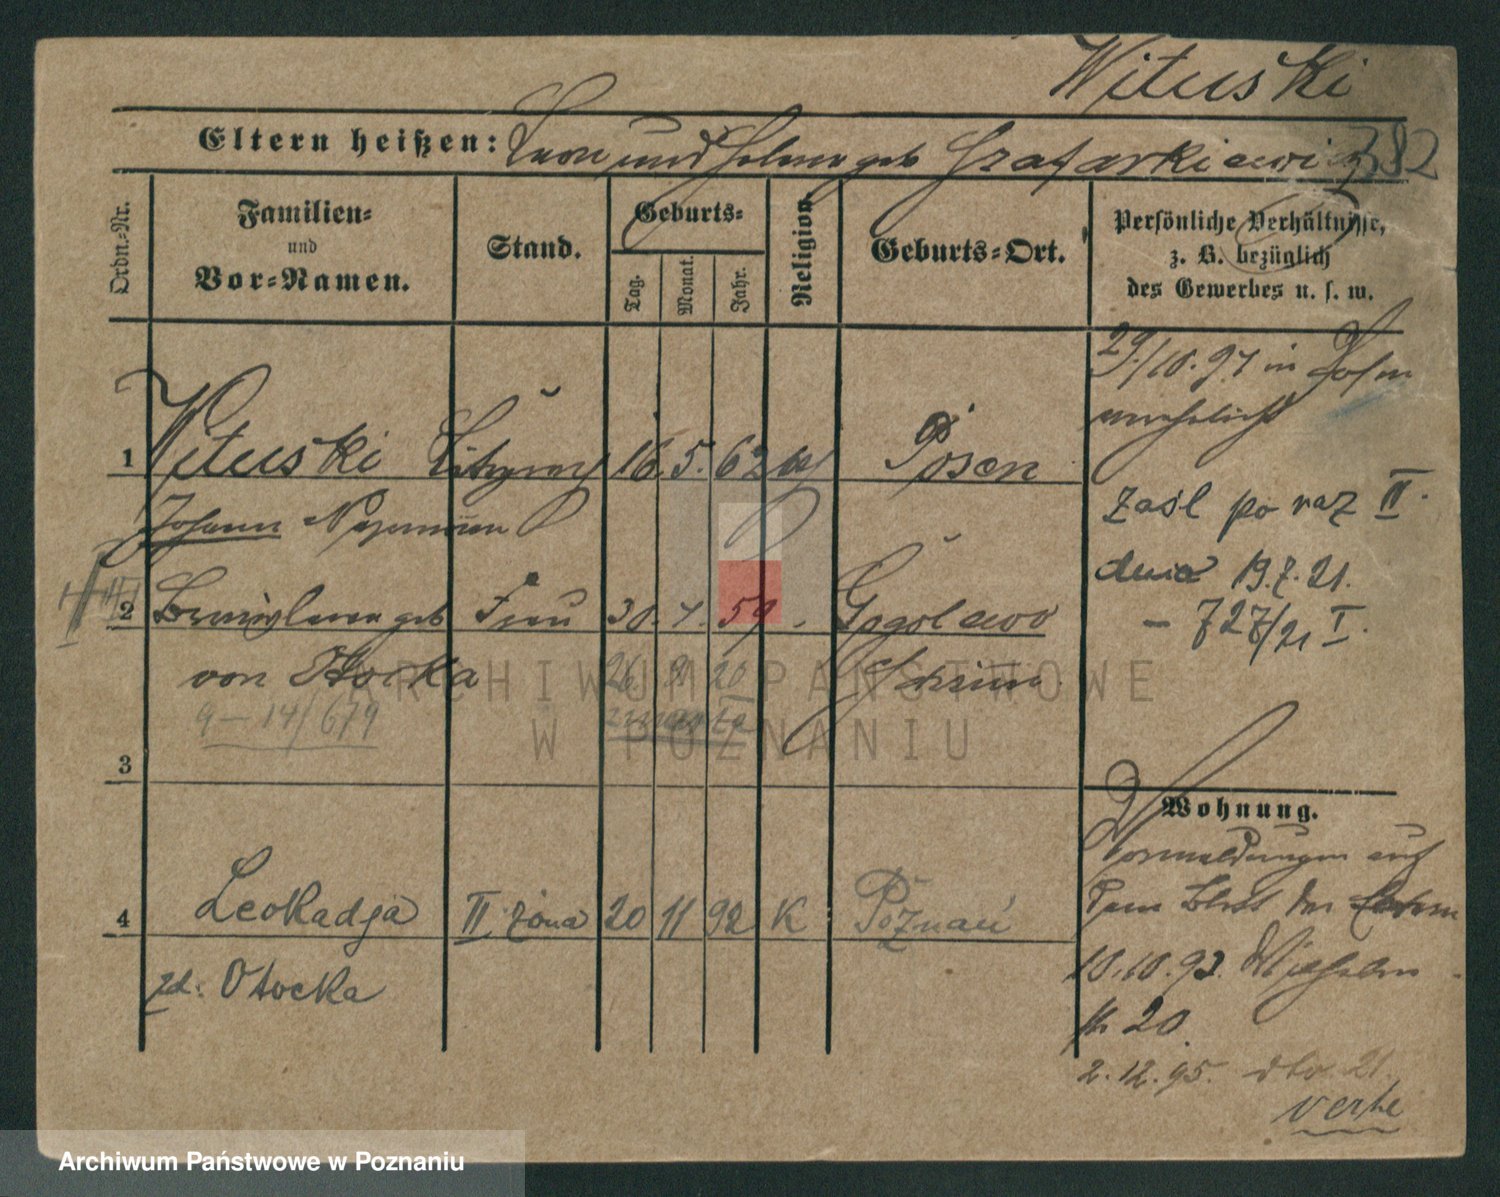 Wituski
382
Eltern heißen: Leon und Helena geb Szafarkiewicz
Ordn.-Nr.
Familien-
und
Vor-Namen.
Stand.
Geburts-
Tag.
Monat.
Jahr.
Religion.
Geburts-Ort.
Persönliche Verhältnisse,
z. B. bezüglich
des Gewerbes u. s. w.
29/10.97 in Posen
verehelicht
1 Wituski 16. 5. 62 Posen
Johann
zaśl po raz II.
dnia 19.7.21.
- 727/21 I.
2 geb Frau 30. 59
von Otocka 26 9 20 Schrimm
9 - 14/679 zmarła
3
Wohnung.
Vormeldungen auf
dem Blatt der
10.10.93. Wilhelm
str 20.
4 Leokadja II. żona 20 11 92 K Poznań
zd: Otocka
2.12.95. dto. 21.
verte
ARCHIWUM PAŃSTWOWE
W POZNANIU
Archiwum Państwowe w Poznaniu